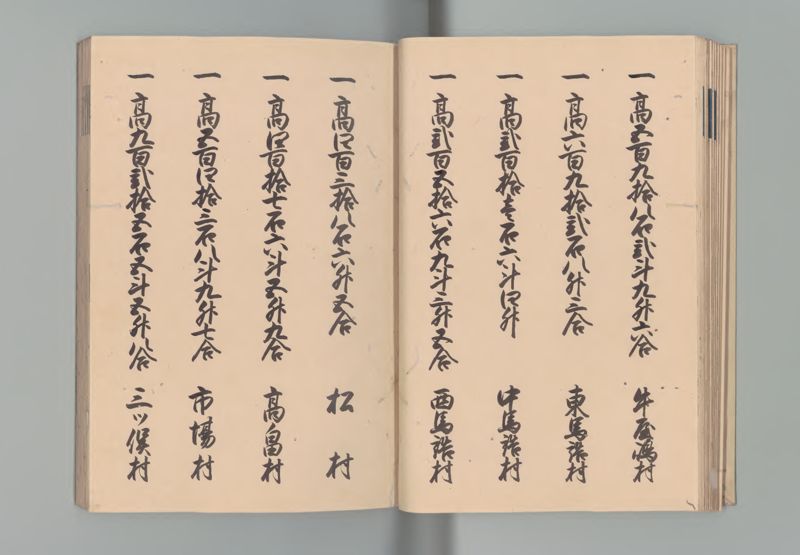 一高五百九拾八石弐斗九升六合 牛屋嶋村
一高六百九拾弐石八升三合 東馬詰村
一高弐百拾壱石六斗四升 中馬詰村
一高弐百五拾六石九斗三升五合 西馬詰村
一高四百三拾八石六升五合 松村
一高四百拾七石六斗五升九合 高畠村
一高五百四拾三石八斗九升七合 市場村
一高九百弐拾五石五斗五升八合 三ツ俣村